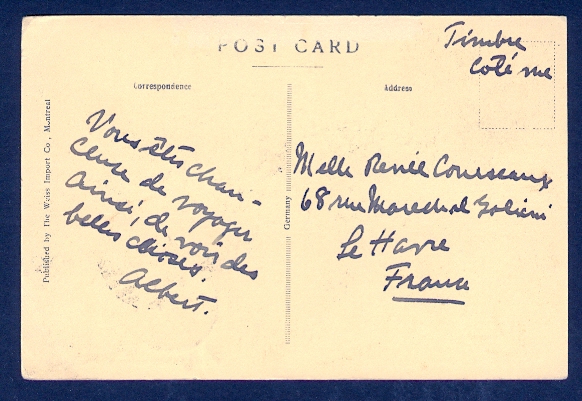 POST CARD
Timbre
Coté vue
Correspondence
Address
Vous êtes chan-
ceuse de voyager
ainsi, de voir des
belles choses.
Albert.
Melle Renée Courseaux
68 rue Marechal Galieni
Le Havre
France
Published by The Weiss Import Co., Montreal
Germany